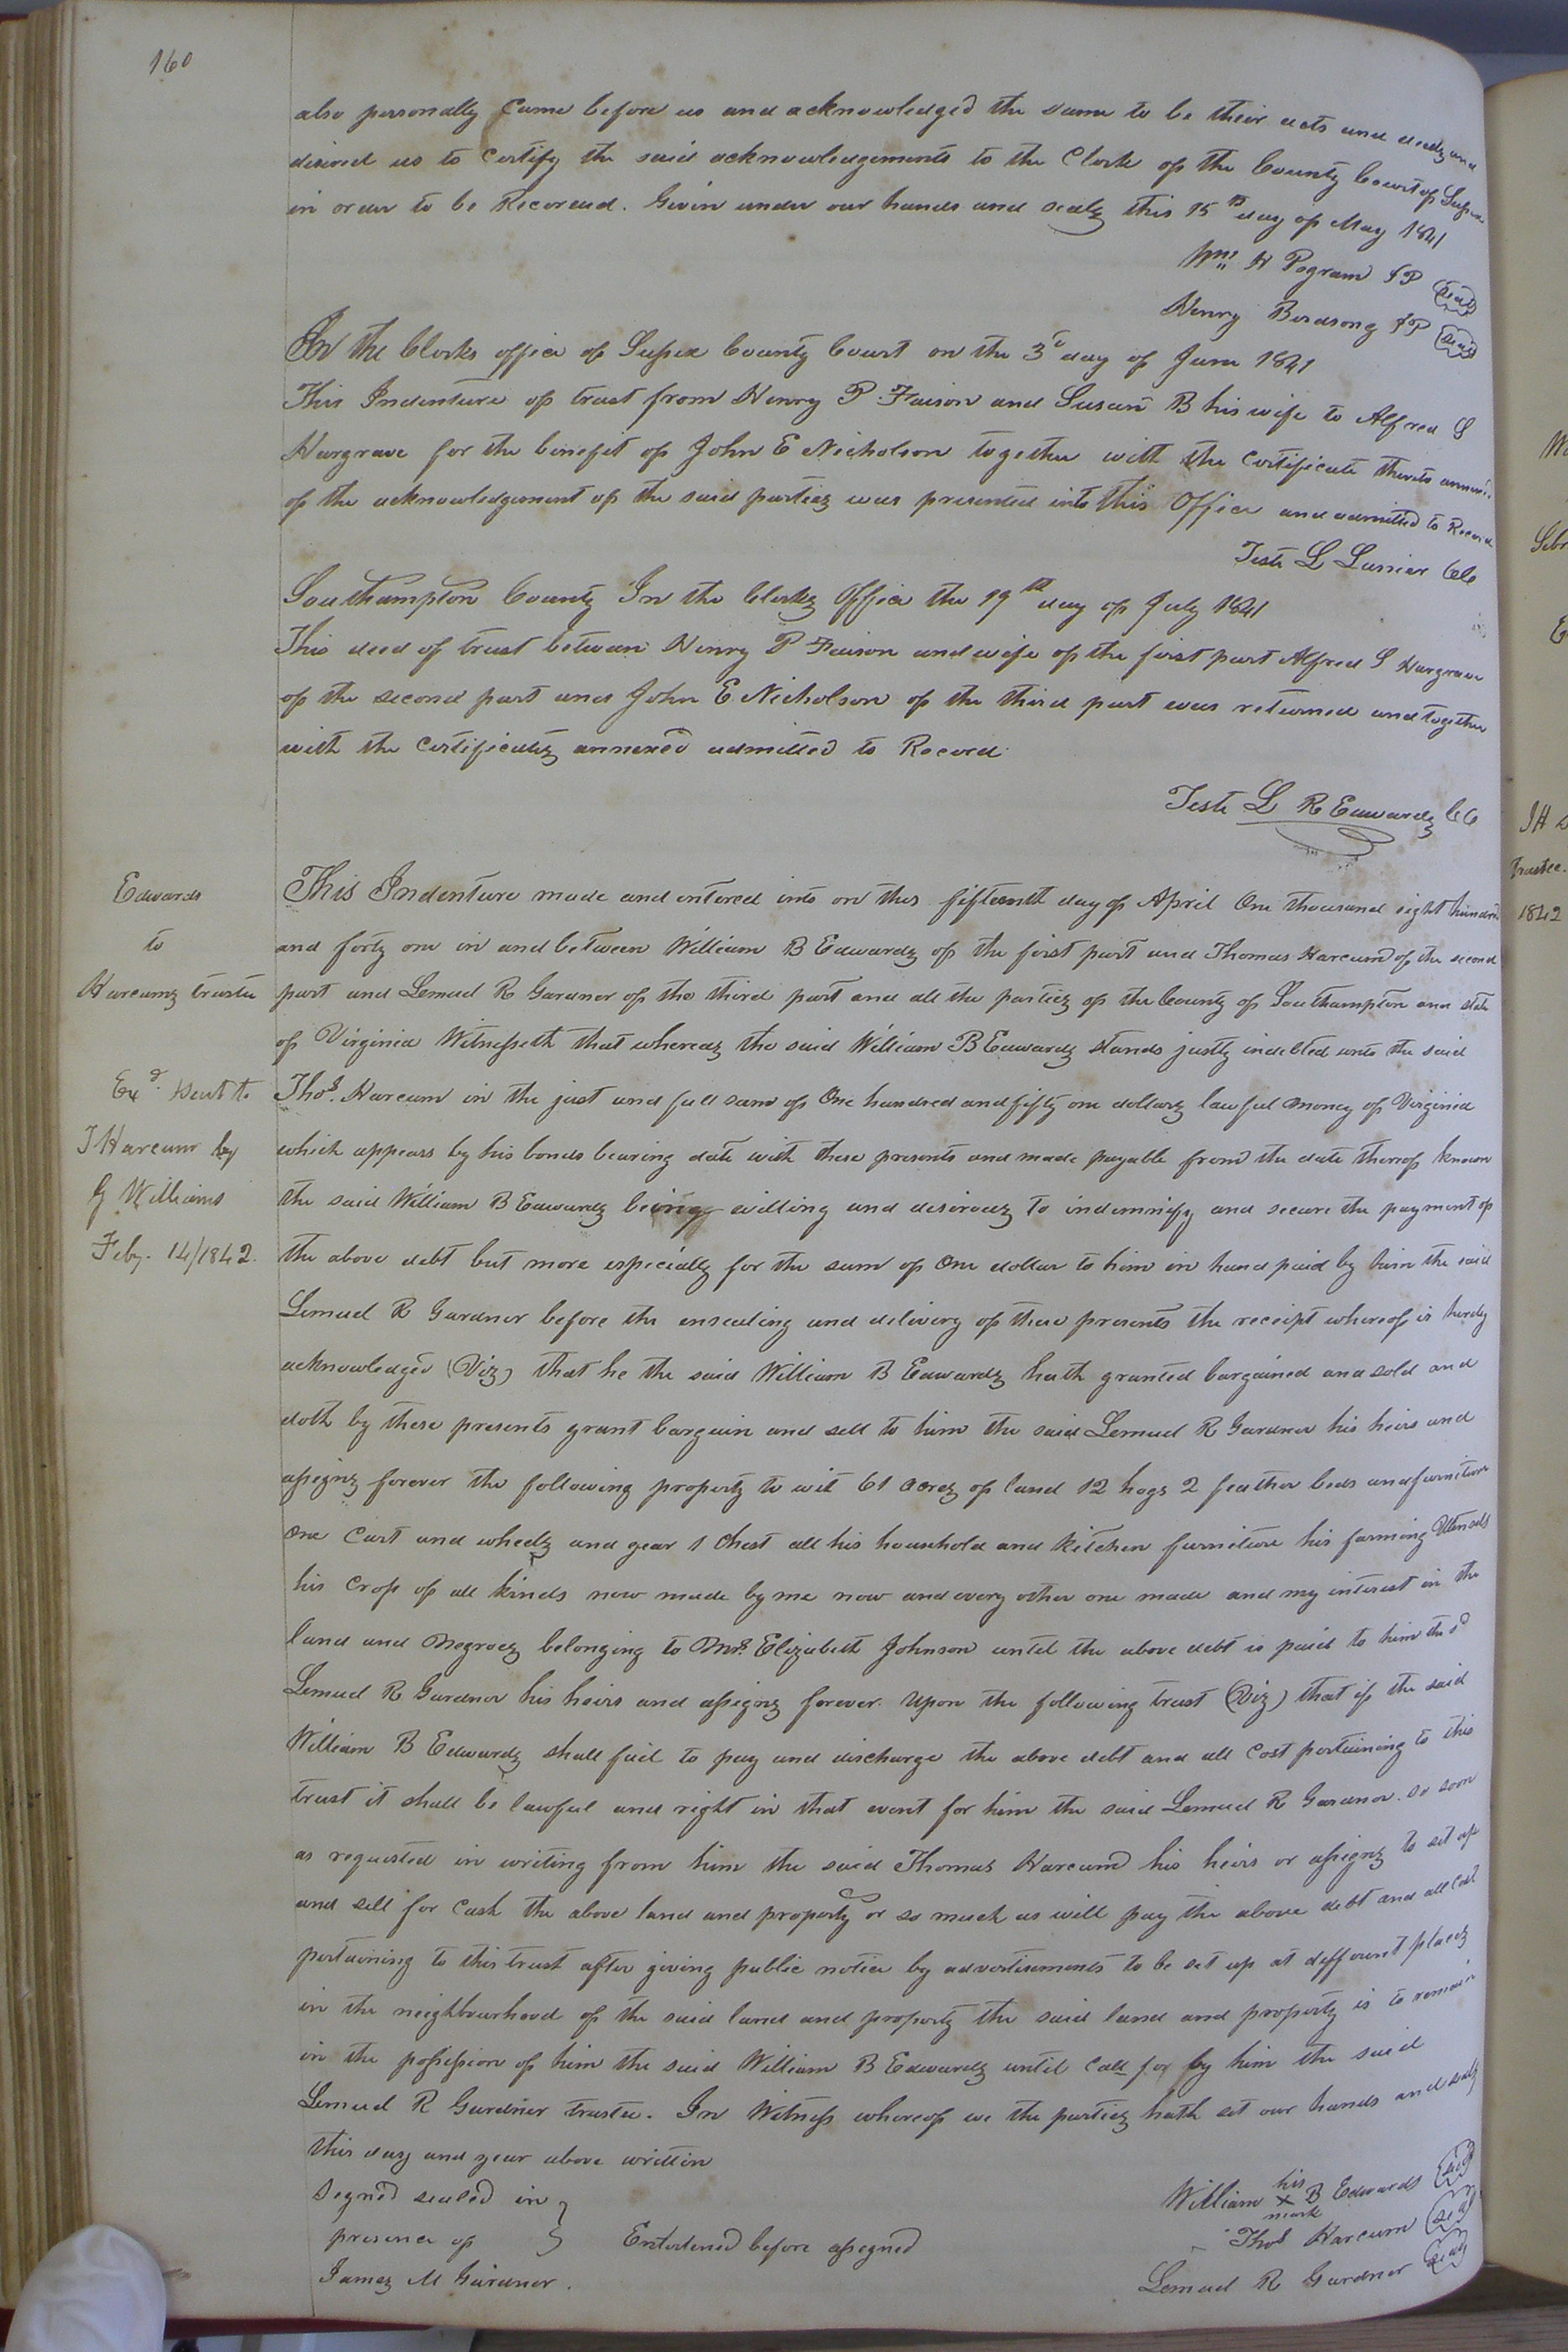 160
also personally Came before us and acknowledged the same to be their acts and deeds and
desired us to Certify the said acknowledgements to the Clerk of the County Court of Sussex
in order to be Recorded. Given under our hands and seals this 15th day of May 1841
Wm. H Pegram JP (Seal)
Henry Birdsong JP (Seal)
In the Clerks office of Sussex County Court on the 3d day of June 1841
This Indenture of trust from Henry P. Faison and Susan B his wife to Alfred S
Hargrave for the benefit of John E Nicholson together with the Certificate thereto annexed
of the acknowledgement of the said parties was presented into this Office and admitted to Record
Teste L Lanier
Southampton County In the Clerks Office the 19th day of July 1841
This deed of trust between Henry P Faison and wife of the first part Alfred S Hargrave
of the second part and John E Nicholson of the third part was returned and together
with the Certificates annexed admitted to Record
Teste L R Edwards CC
Edwards
to
Harcums trustee
Exd. Sent to
T Harcum by
G Williams
Feby. 14/1842.
This Indenture made and entered into on this fifteenth day of April One thousand eight hundred
and forty one in and between William B Edwards of the first part and Thomas Harcum of the second
part and Lemuel R Gardner of the third part and all the parties of the County of Southampton and state
of Virginia Witnesseth that whereas the said William B Edwards stands justly indebted unto the said
Thos. Harcum in the just and full sum of One hundred and fifty one dollars lawful money of Virginia
which appears by his bonds bearing date with these presents and made payable from the date thereof known
the said William B Edwards being willing and desirous to indemnify and secure the payment of
the above debt but more especially for the sum of One dollar to him in hand paid by him the said
Lemuel R Gardner before the ensealing and delivery of these presents the receipt whereof is hereby
acknowledged (Viz) that he the said William B Edwards hath granted bargained and sold and
doth by these presents grant bargain and sell to him the said Lemuel R Gardner his heirs and
assigns forever the following property to wit 61 acres of land 12 hogs 2 feather beds and furniture
One Cart and wheels and gear 1 Chest all his household and Kitchen furniture his farming Utensils
his Crop of all kinds now made by me now and every other one made and my interest in the
land and Negroes belonging to Mrs. Elizabeth Johnson until the above debt is paid to him the sd
Lemuel R Gardner his heirs and assigns forever. Upon the following trust (Viz) that if the said
William B Edwards shall fail to pay and discharge the above debt and all Cost pertaining to this
trust it shall be lawful and right in that event for him the said Lemuel R Gardner. so soon
as requested in writing from him the said Thomas Harcum his heirs or assigns to set up
and sell for Cash the above land and property or so much as will pay the above debt and all Cost
pertaining to this trust after giving public notice by advertisements to be set up at different places
in the neighbourhood of the said land and property the said land and property is to remain
in the possession of him the said William B Edwards until Call for by him the said
Lemuel R Gardner trustee. In Witness whereof we the parties hath set our hands and seals
this day and year above written
Signed sealed in
presence of
Enterlened before assigned
James M Gardner.
William his X mark B Edwards (Seal)
Thos Harcum (Seal)
Lemuel R Gardner (Seal)
Trustee.
1842